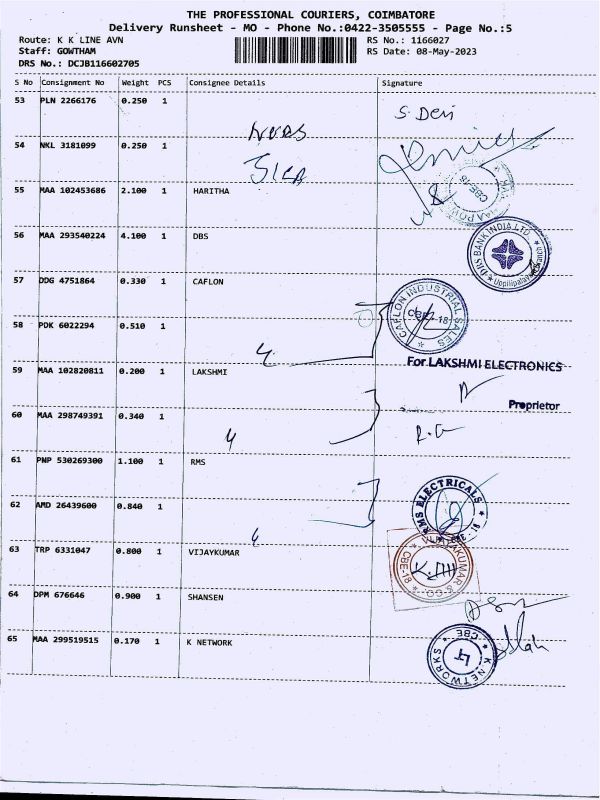 THE PROFESSIONAL COURIERS, COIMBATORE
Delivery Runsheet - MO - Phone No.:0422-3505555 - Page No.:5
Route: K K LINE AVN
RS No.: 1166027
Staff: GOWTHAM
RS Date: 08-May-2023
DRS No.: DCJB116602705
S No Consignment No Weight PCS Consignee Details Signature
53 PLN 2266176 0.250 1
S. Devi
54 NKL 3181099 0.250 1
55 MAA 102453686 2.100 1 HARITHA
CBE-18
56 MAA 293540224 4.100 1 DBS
DBS BANK INDIA LTD.
57 DDG 4751864 0.330 1 CAFLON
CAFLON INDUSTRIAL SALES
CBE-18
58 PDK 6022294 0.510 1
59 MAA 102820811 0.200 1 LAKSHMI
For LAKSHMI ELECTRONICS
Proprietor
60 MAA 298749391 0.340 1
61 PNP 530269300 1.100 1 RMS
RMS ELECTRICALS
62 AMD 26439600 0.840 1
63 TRP 6331047 0.800 1 VIJAYKUMAR
VIJAYKUMAR & CO
CBE-18
64 DPM 676646 0.900 1 SHANSEN
65 MAA 299519515 0.170 1 K NETWORK
CBE
K NETWORKS